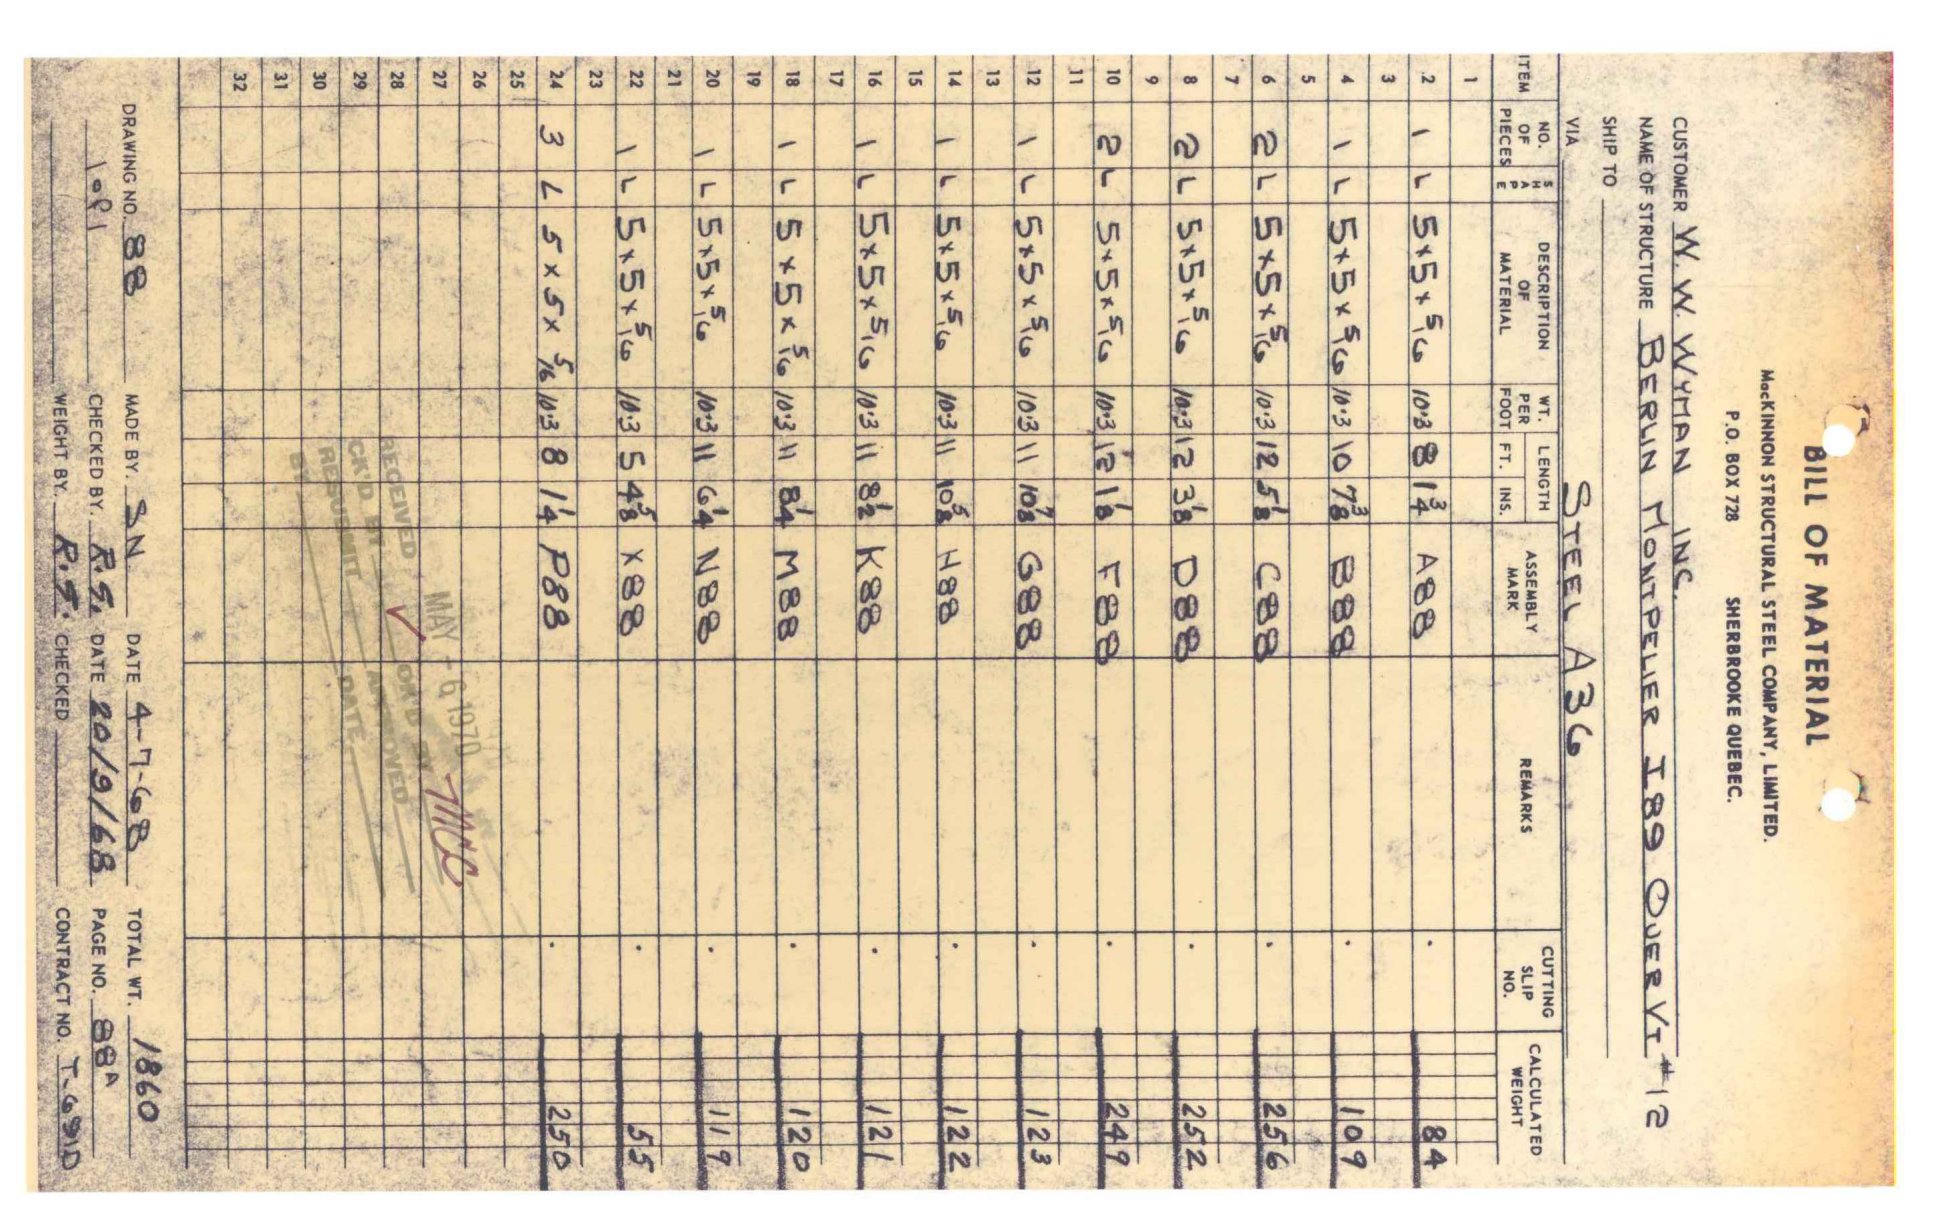 BILL OF MATERIAL
MacKINNON STRUCTURAL STEEL COMPANY, LIMITED.
P.O. BOX 728 SHERBROOKE QUEBEC.
CUSTOMER W. W. WYMAN INC.
NAME OF STRUCTURE BERLIN MONTPELIER I 89 OVER VT #12
SHIP TO
VIA STEEL A36
ITEM NO. OF PIECES SHAPE DESCRIPTION OF MATERIAL WT. PER FOOT LENGTH FT. INS. ASSEMBLY MARK REMARKS CUTTING SLIP NO. CALCULATED WEIGHT
1
2 1 L 5x5x5/16 10.3 8 1 3/4 A88 84
3
4 1 L 5x5x5/16 10.3 10 7 3/8 B88 109
5
6 2 L 5x5x5/16 10.3 12 5 1/8 C88 256
7
8 2 L 5x5x5/16 10.3 12 3 1/8 D88 252
9
10 2 L 5x5x5/16 10.3 12 1 1/8 F88 249
11
12 1 L 5x5x5/16 10.3 11 10 7/8 G88 123
13
14 1 L 5x5x5/16 10.3 11 10 5/8 H88 122
15
16 1 L 5x5x5/16 10.3 11 8 1/2 K88 121
17
18 1 L 5x5x5/16 10.3 11 8 1/4 M88 120
19
20 1 L 5x5x5/16 10.3 11 6 1/4 N88 119
21
22 1 L 5x5x5/16 10.3 5 4 5/8 X88 55
23
24 3 L 5x5x5/16 10.3 8 1 1/4 P88 250
25
26
27
28
29
30
31
32
MAY - 6 1970
RECEIVED
CK'D BY OK'D BY
RESUBMIT APPROVED
BY DATE
DRAWING NO. 88 MADE BY. SN DATE 4-7-68 TOTAL WT. 1860
1 of 1 CHECKED BY. R.S. DATE 20/9/68 PAGE NO. 88A
WEIGHT BY. R.S. CHECKED CONTRACT NO. T-691D